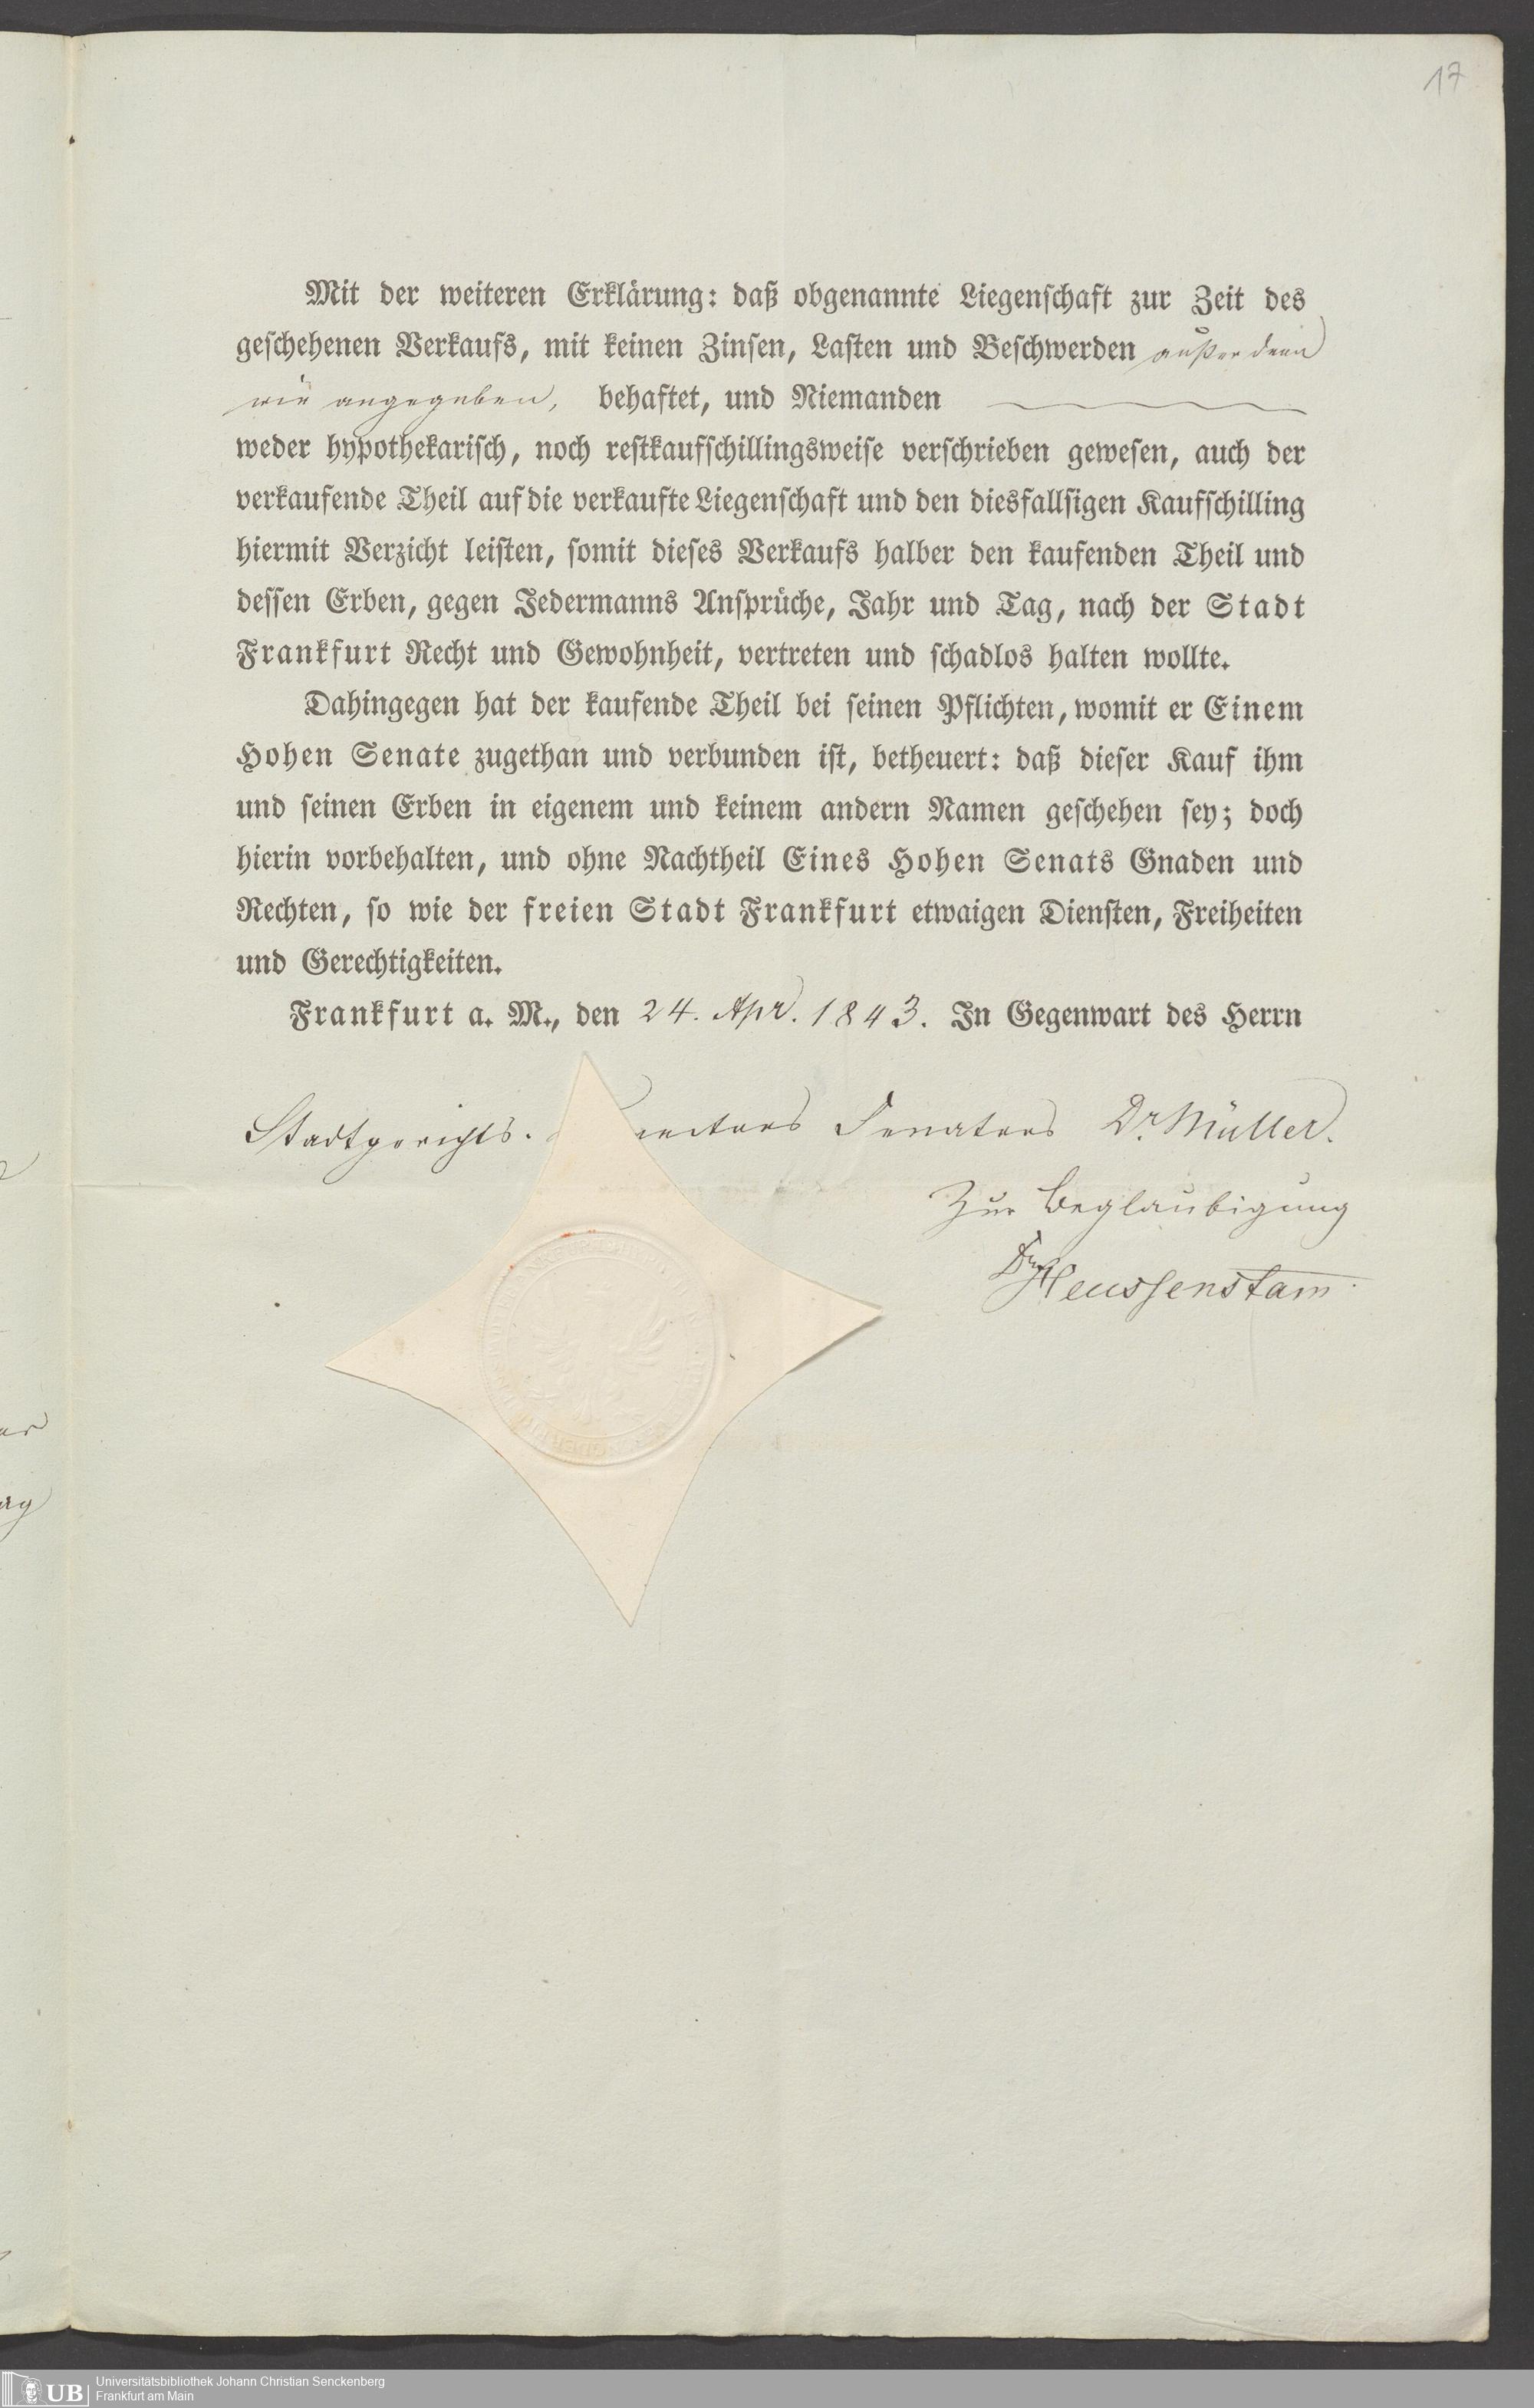 17
Mit der weiteren Erklärung: daß obgenannte Liegenschaft zur Zeit des
geschehenen Verkaufs, mit keinen Zinsen, Lasten und Beschwerden außer denn
wie angegeben, behaftet, und Niemanden
weder hypothekarisch, noch restkaufschillingsweise verschrieben gewesen, auch der
verkaufende Theil auf die verkaufte Liegenschaft und den diesfallsigen Kaufschilling
hiermit Verzicht leisten, somit dieses Verkaufs halber den kaufenden Theil und
dessen Erben, gegen Jedermanns Ansprüche, Jahr und Tag, nach der Stadt
Frankfurt Recht und Gewohnheit, vertreten und schadlos halten wollte.
Dahingegen hat der kaufende Theil bei seinen Pflichten, womit er Einem
Hohen Senate zugethan und verbunden ist, betheuert: daß dieser Kauf ihm
und seinen Erben in eigenem und keinem andern Namen geschehen sey; doch
hierin vorbehalten, und ohne Nachtheil Eines Hohen Senats Gnaden und
Rechten, so wie der freien Stadt Frankfurt etwaigen Diensten, Freiheiten
und Gerechtigkeiten.
Frankfurt a. M., den 24. Apr. 1843. In Gegenwart des Herrn
Stadtgerichts. Senators Dr. Müller.
Zur Beglaubigung
Dr. Heussenstam
UB Universitätsbibliothek Johann Christian Senckenberg
Frankfurt am Main